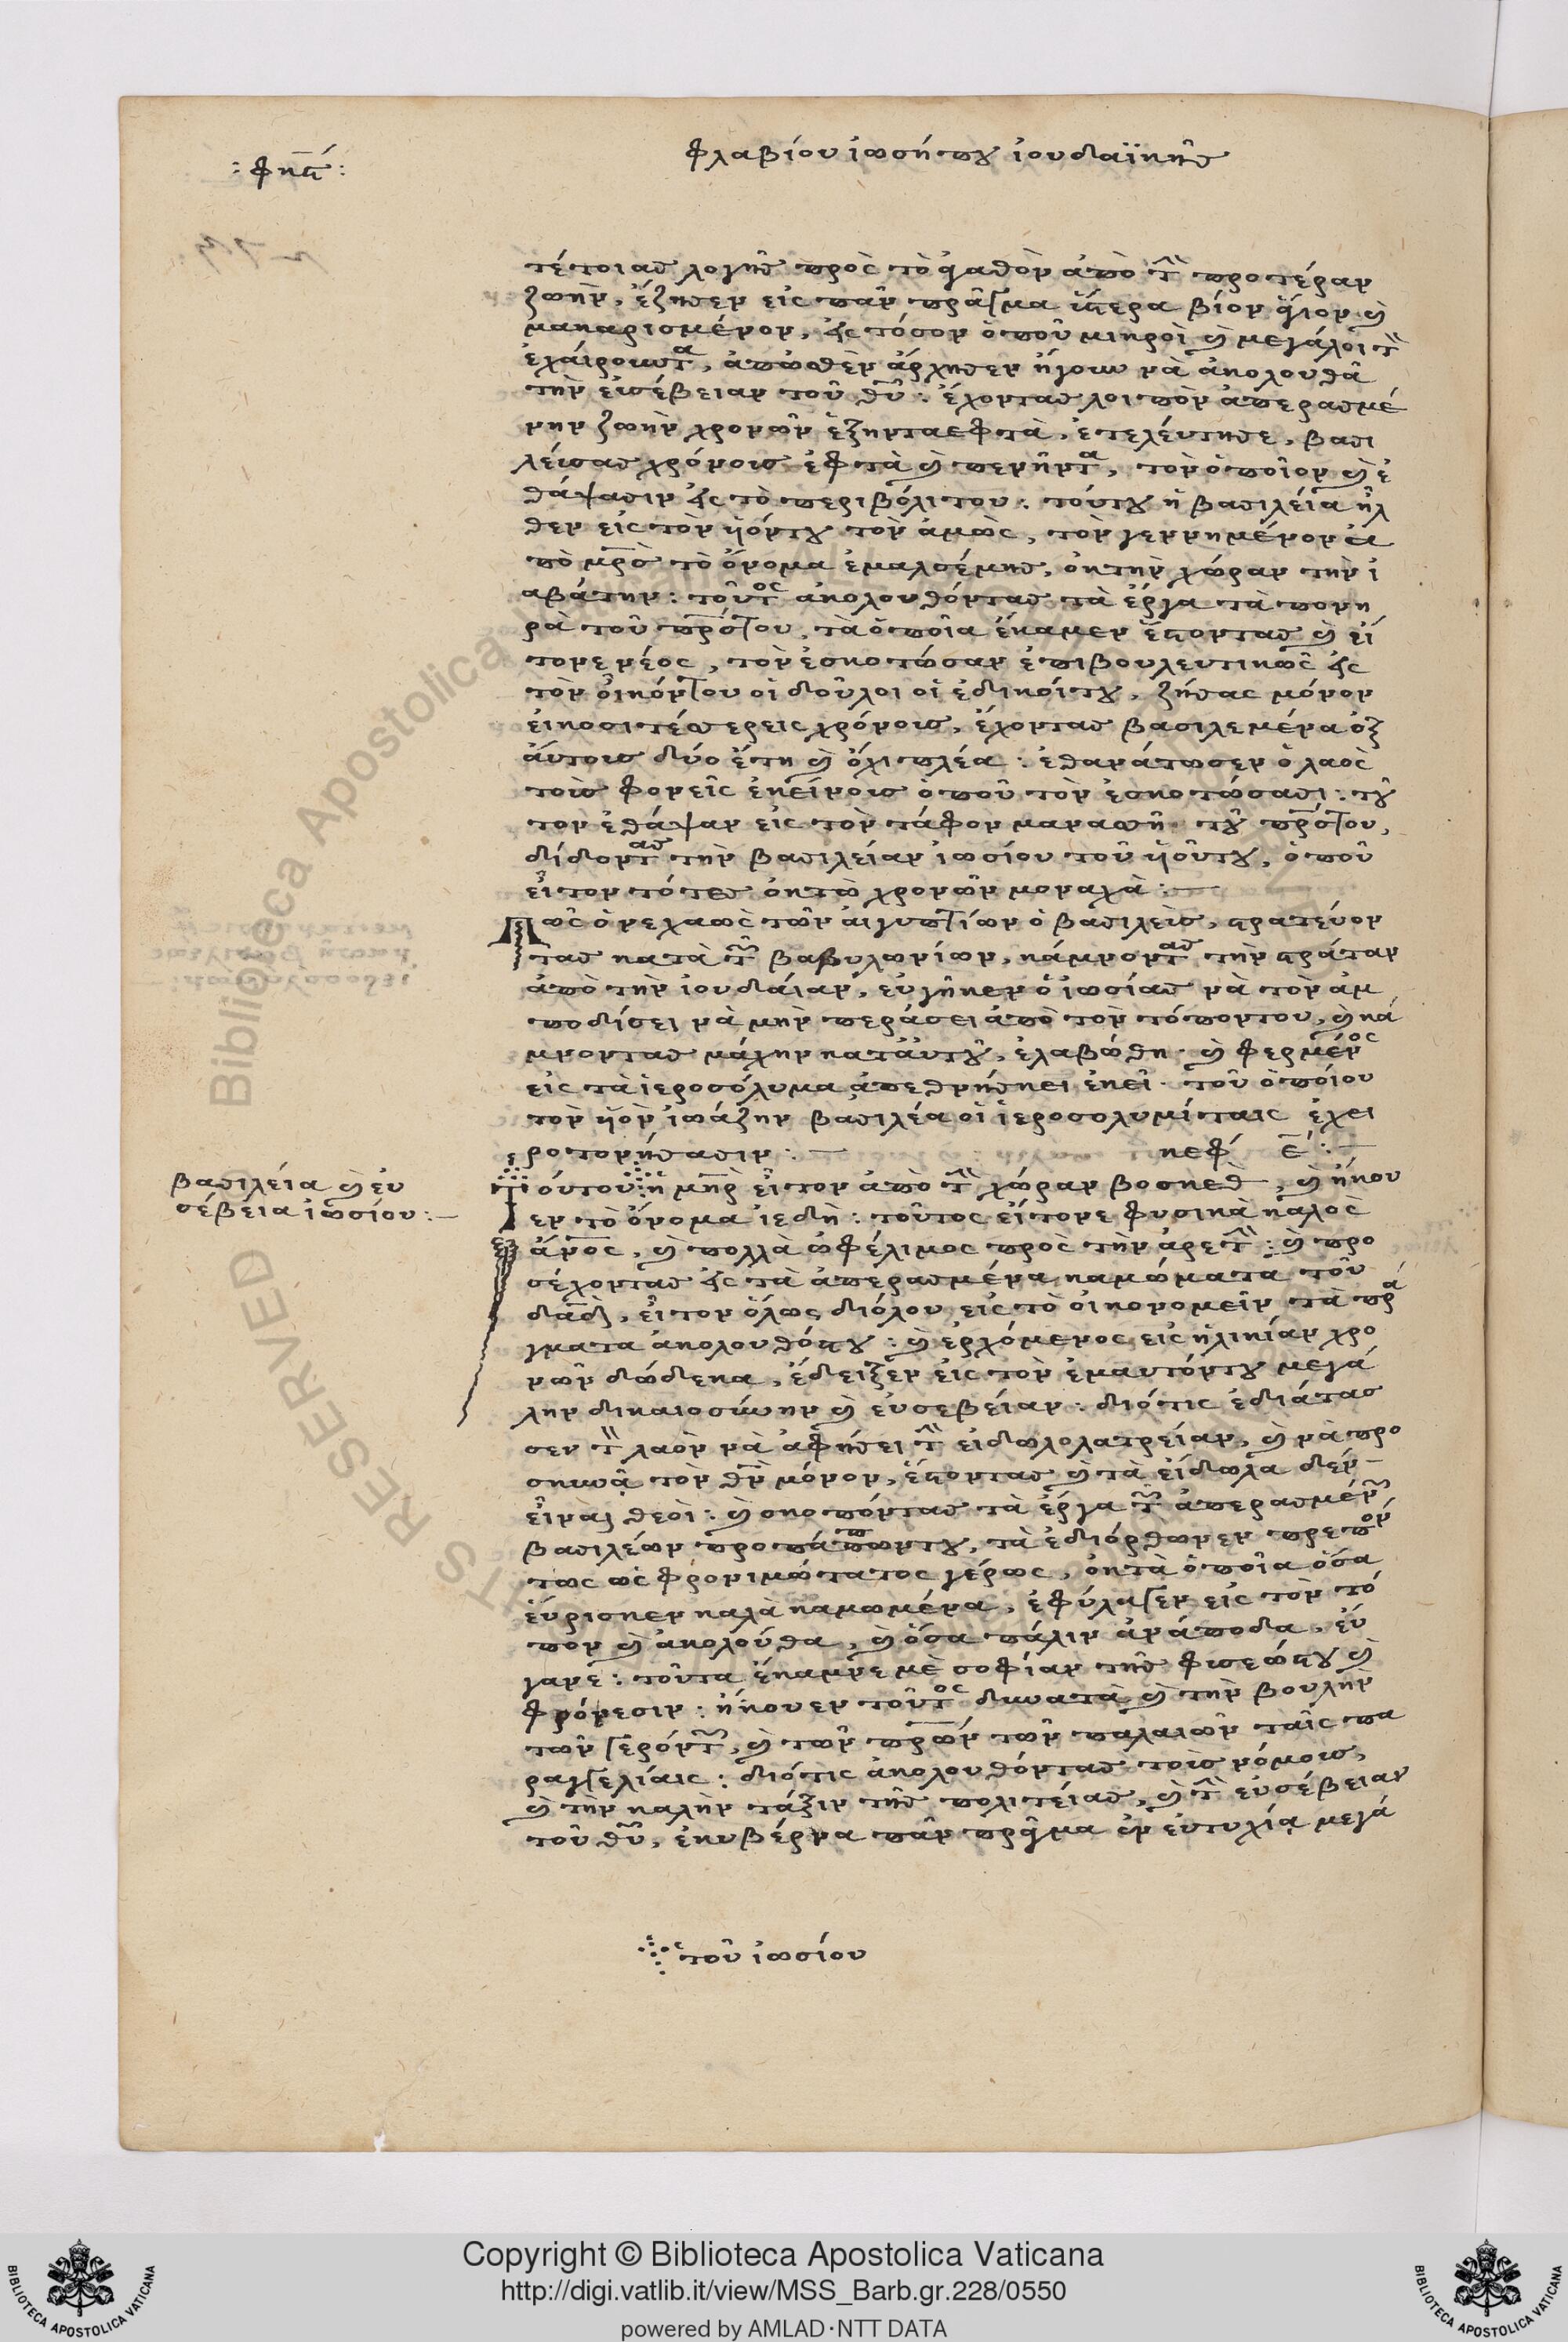 :φπς´:
φλαβίου ἰωσήπου ἰουδαϊκῆς
τέτοιας λογῆς πρὸς τὸ ἀγαθὸν ἀπὸ τὴν προτέραν
ζωὴν, ἔζησεν εἰς πᾶν πρᾶγμα ὕστερα βίον ἅγιον καὶ
μακαρισμένον, εἰς τόσον ὁποῦ μικροὶ καὶ μεγάλοι τὸν
ἐχαίρουντα, ἀπώθεν ἄρχησεν ἤγουν νὰ ἀκολουθᾶ
τὴν εὐσέβειαν τοῦ θῦ: ἔχοντας λοιπὸν ἀπερασμέ
νην ζωὴν χρονῶν ἑξηνταεφτὰ, ἐτελέυτησε, βασι
λεύσας χρόνους ἐφτὰ καὶ πενῆντα, τὸν ὁποῖον καὶ ἐ
θάψασιν εἰς τὸ περιβόλιτου: τούτου ἡ βασιλεία ἦλ
θεν εἰς τὸν ὑιόντου τὸν ἀμὼς, τὸν γεννημένον ἀ
πὸ μρὸς τὸ ὄνομα ἐμαλσέμης, ἐκ τὴν χώραν τὴν ἰ
αβάτην: τοῦτος ἀκολουθόντας τὰ ἔργα τὰ πονη
ρὰ τοῦ πρστου, τὰ ὁποῖα ἔκαμεν ἔστοντας καὶ εἴ
τονε νέος, τὸν ἐσκοτώσαν ἐπιβουλευτικῶς εἰς
τὸν οἰκόντου οἱ δοῦλοι οἱ ἐδικοίτου, ζήσας μόνον
εἰκοσιτέσσερεις χρόνους, ἔχοντας βασιλεμένα ἐξ
ἄυτους δύο ἔτη καὶ ὄχι πλέα: ἐθανάτωσεν ὁ λαὸς
τοὺς φονεῖς ἐκείνους ὁποῦ τὸν ἐσκοτώσασι: τοῦ
τον ἐθάψαν εἰς τὸν τάφον μανασῆ τοῦ πρστου,
δίδοντας τὴν βασιλείαν ἰωσίου τοῦ ὑιοῦντου, ὁποῦ
εἶτον τότες ὀκτὼ χρονῶν μοναχὰ:—
Πῶς ὁ νεχαὼς τῶν αἰγυπτίων ὁ βασιλεὺς, στρατεύον
τας κατὰ τῶν βαβυλωνίων, κάμνοντας τὴν στράταν
ἀπὸ τὴν ἰουδαίαν, εὐγῆκεν ὁ ἰωσίας νὰ τὸν ἀμ
ποδίσει νὰ μὴν περάσει ἀπὸ τὸν τόποντου, καὶ κά
μνοντας μάχην κατ᾽ἀυτοῦ, ἐλαβώθη. καὶ φερμένος
εἰς τὰ ἱεροσόλυμα ἀπεθνήσκει ἐκεῖ. τοῦ ὁποίου
τὸν ὑιὸν ἰωάζην βασιλέα οἱ ἱεροσολυμίταις ἐχει
ροτονήσασιν:— κεφ ε´:—
βασιλεία καὶ ἐυ
σέβεια ἰωσίου:—
Τούτου ἡ μηρ εἶτον ἀπὸ τὴν χώραν βοσκεθ, καὶ ἤκου
εν τὸ ὄνομα ἰεδὴ: τοῦτος εἴτονε φυσικὰ καλὸς
ἄνος, καὶ πολλὰ ὠφέλιμος πρὸς τὴν ἀρετὴν: καὶ προ
σέχοντας εἰς τὰ ἀπερασμένα καμώματα τοῦ
δαδ, εἶτον ὅλως διόλου εἰς τὸ οἰκονομεῖν τὰ πρά
γματα ἀκολουθόςτου: καὶ ἐρχόμενος εἰς ἡλικίαν χρο
νῶν δώδεκα, ἔδειξεν εἰς τὸν ἐμαυτόντου μεγά
λην δικαιοσύνην καὶ ἐυσεβείαν: διότις ἐδιάτασ
σεν τὸν λαὸν νὰ ἀφήσει τὴν εἰδωλολατρείαν, καὶ νὰ προ
σκυνᾷ τὸν θν μόνον, ἔστοντας καὶ τὰ εἴδωλα δεν
εἶναι θεοὶ: καὶ σκοπόντας τὰ ἔργα τῶν ἀπερασμένων
βασιλέων προπάππωντου, τὰ ἐδιόρθωνεν πρεπόν
τως ὡς φρονιμώτατος γέρως, ἐκ τὰ ὁποῖα ὅσα
ἑύρισκεν καλὰ καμωμένα, ἐφύλαγεν εἰς τὸν τό
πον καὶ ἀκολούθα, καὶ ὅσα πάλιν ἀνάποδα, ἐύ
γανε: τοῦτα ἔκαμνε μὲ σοφίαν τῆς φυσεώςτου καὶ
φρόνεσιν: ἤκουεν τοῦτος δυνατὰ καὶ τὴν βουλὴν
τῶν γερόντων, καὶ τῶν πρων τῶν παλαιῶν ταῖς πα
ραγγελίαις: διότις ἀκολουθόντας τοὺς νόμους,
καὶ τὴν καλὴν τάξιν τῆς πολιτείας, καὶ τὴν ευσέβειαν
τοῦ θῦ, ἐκυβέρνα πᾶν πρᾶγμα ἐν ἐυτυχίᾳ μεγά
τοῦ ἰωσίου
Copyright © Biblioteca Apostolica Vaticana
http://digi.vatlib.it/view/MSS_Barb.gr.228/0550
powered by AMLAD·NTT DATA